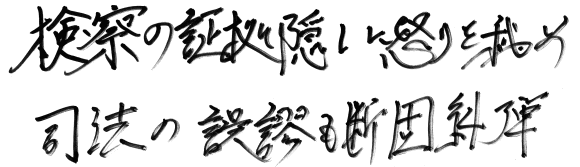 検察の証拠隠しに怒りを秘め
司法の誤謬も断固糾弾